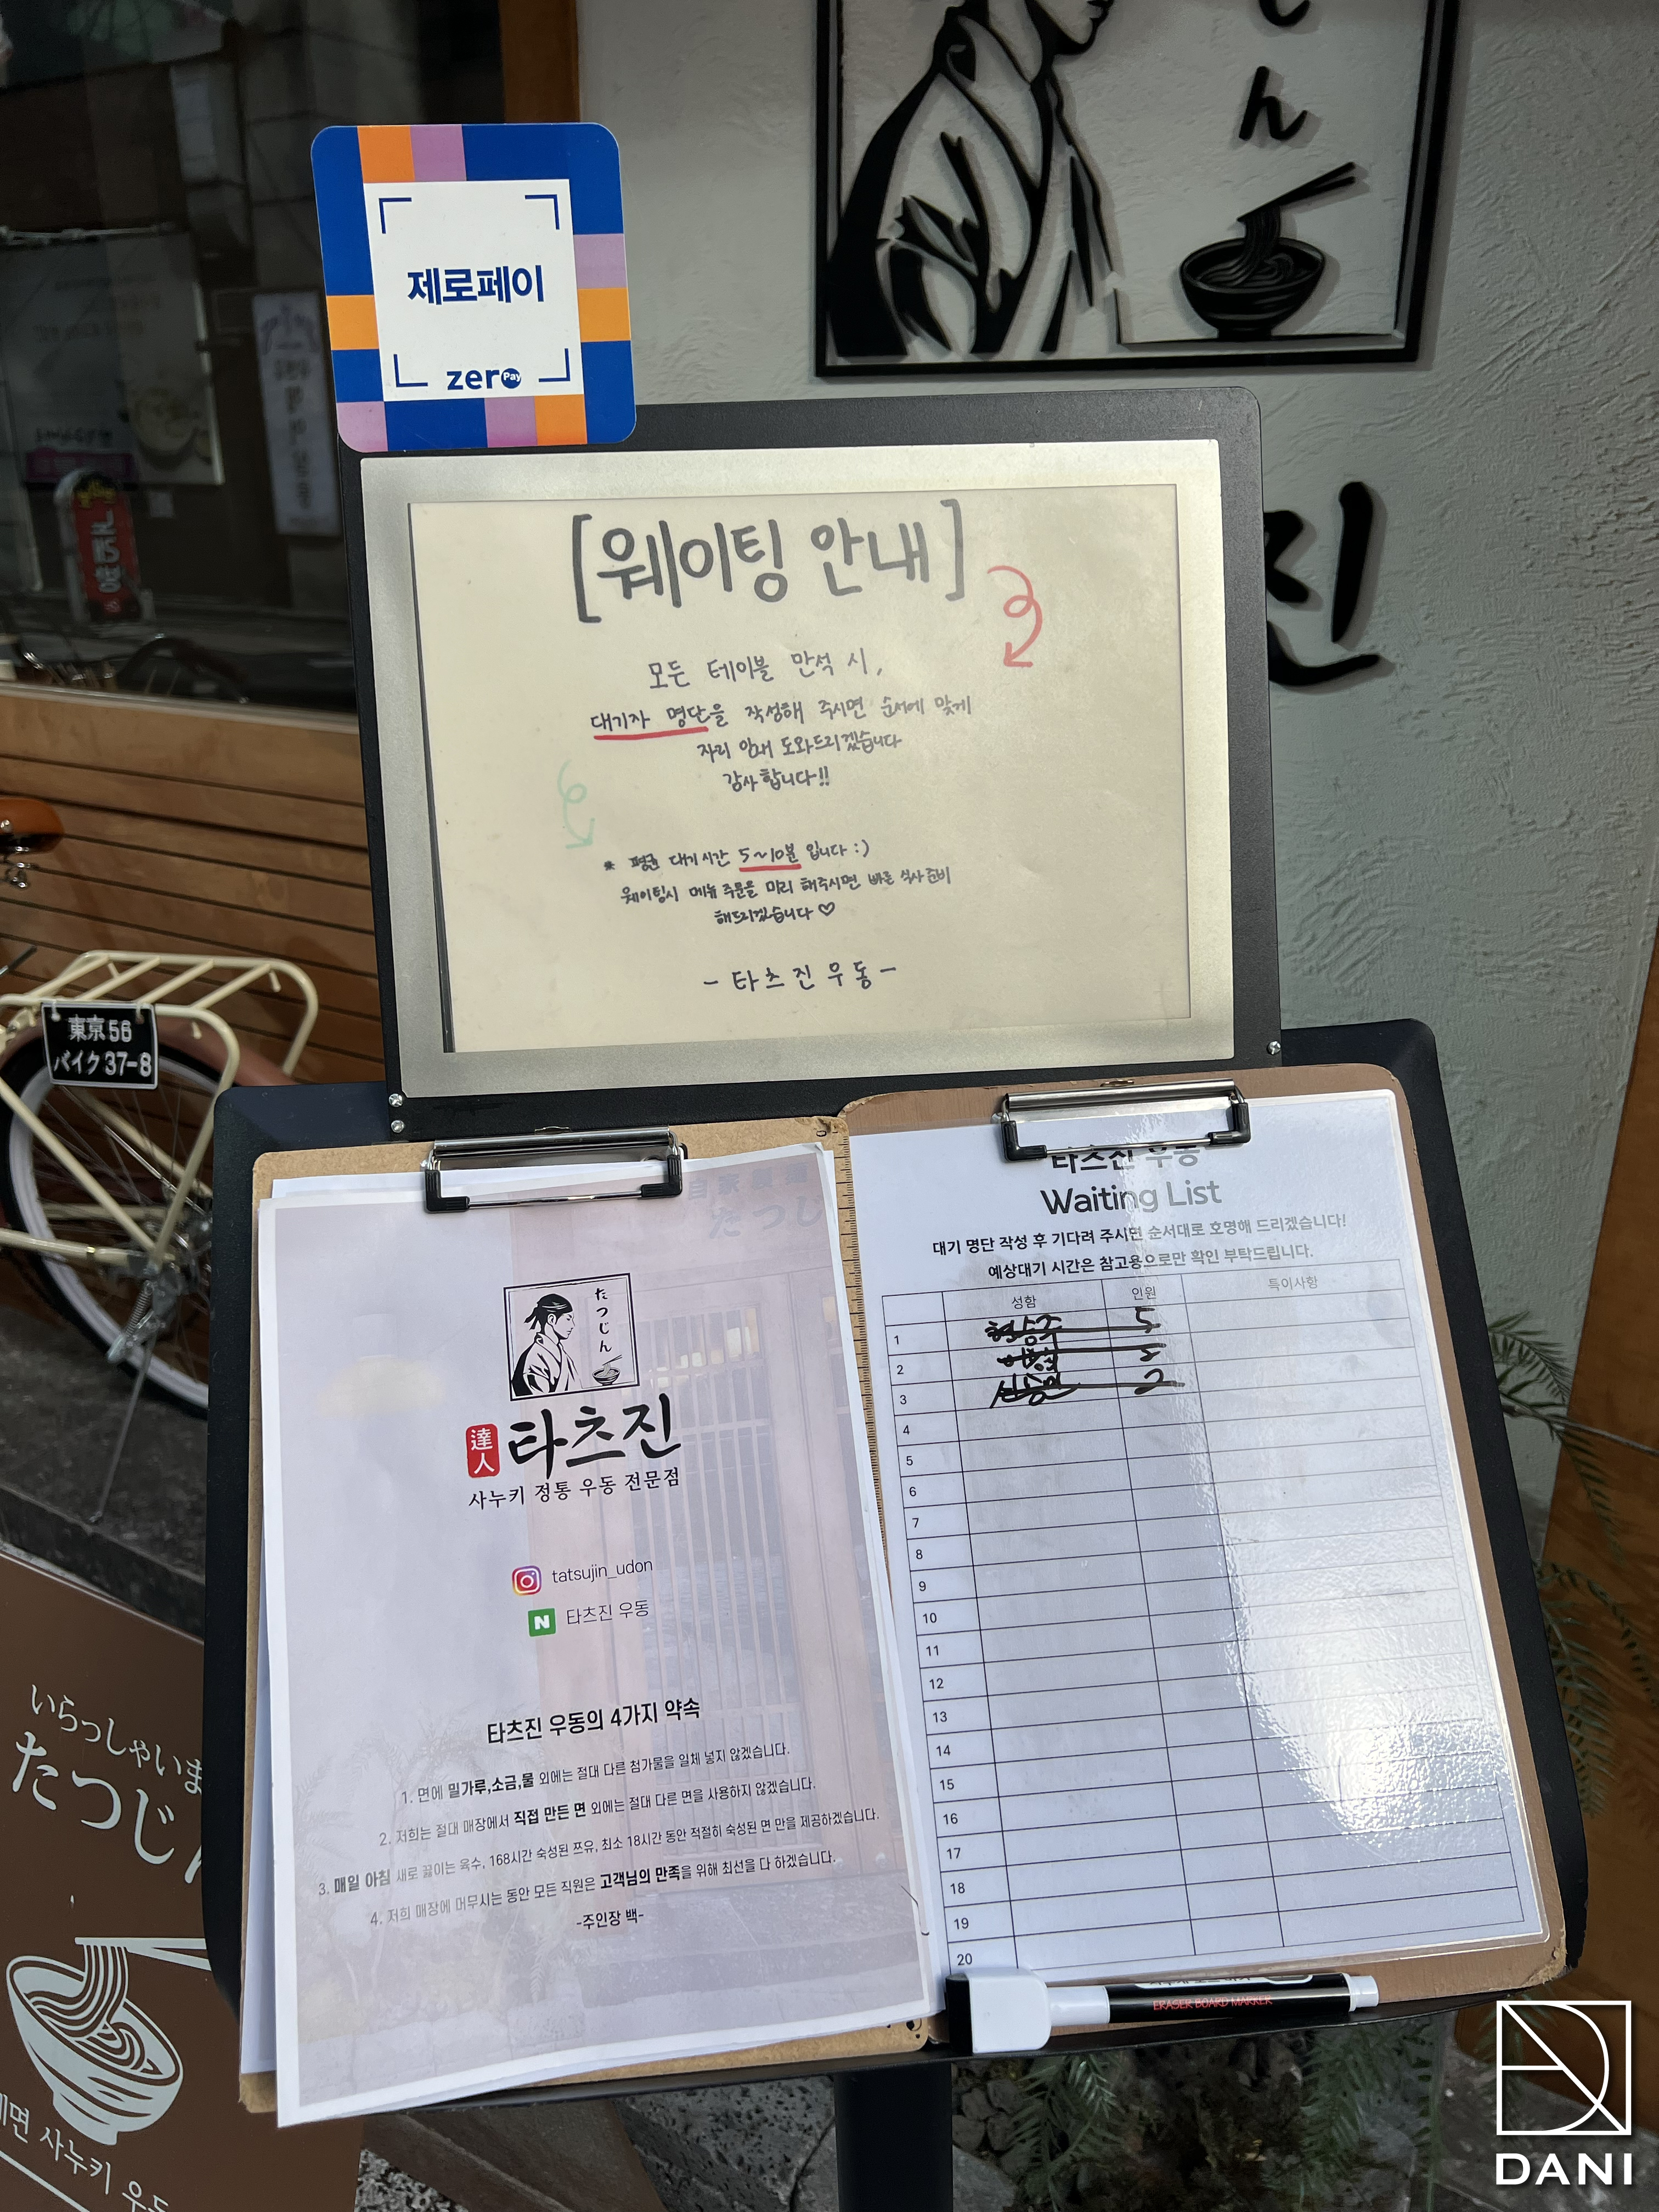 ん
제로페이
zero Pay
진
[웨이팅 안내]
모든 테이블 만석 시,
대기자 명단을 작성해 주시면 순서에 맞게
자리 안내 도와드리겠습니다
감사합니다!!
* 평균 대기시간 5~10분 입니다 :)
웨이팅시 메뉴 주문을 미리 해주시면 빠른 식사 준비
해드리겠습니다 ♡
- 타츠진 우동 -
東京 56
バイク 37-8
自家製麺
たつじ
たつじん
達人
타츠진
사누키 정통 우동 전문점
tatsujin_udon
N 타츠진 우동
타츠진 우동의 4가지 약속
1. 면에 밀가루,소금,물 외에는 절대 다른 첨가물을 일체 넣지 않겠습니다.
2. 저희는 절대 매장에서 직접 만든 면 외에는 절대 다른 면을 사용하지 않겠습니다.
3. 매일 아침 새로 끓이는 육수, 168시간 숙성된 쯔유, 최소 18시간 동안 적절히 숙성된 면 만을 제공하겠습니다.
4. 저희 매장에 머무시는 동안 모든 직원은 고객님의 만족을 위해 최선을 다 하겠습니다.
-주인장 백-
타츠진 우동
Waiting List
대기 명단 작성 후 기다려 주시면 순서대로 호명해 드리겠습니다!
예상대기 시간은 참고용으로만 확인 부탁드립니다.
성함 인원 특이사항
1 5
2
3 2
4
5
6
7
8
9
10
11
12
13
14
15
16
17
18
19
20
ERASER BOARD MARKER
いらっしゃいま
たつじん
제면 사누키 우동
DANI